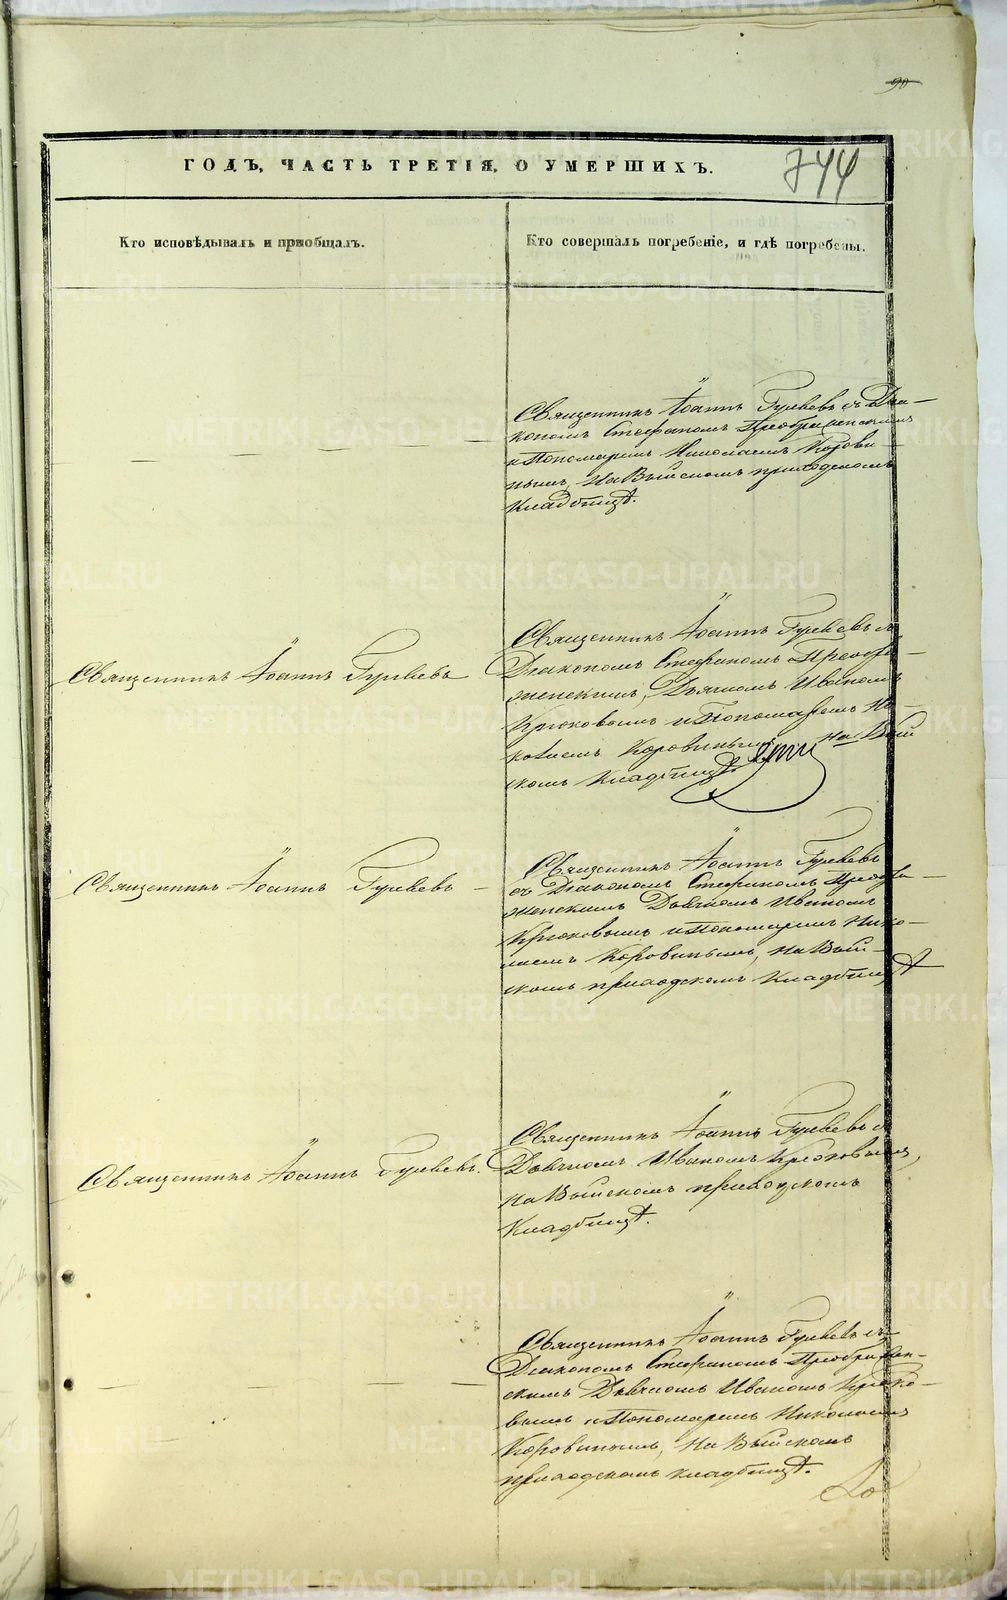 90
744
ГОДЪ, ЧАСТЬ ТРЕТІЯ, О УМЕРШИХЪ.
Кто исповѣдывалъ и пріобщалъ.
Кто совершалъ погребеніе, и гдѣ погребены.
Священникъ Іоаннъ Гуляевъ съ Діа-
кономъ Стефаномъ Преображенскимъ
и Пономаремъ Николаемъ Корови-
нымъ, На Выйскомъ приходскомъ
Кладбищѣ.
Священникъ Іоаннъ Гуляевъ
Священникъ Іоаннъ Гуляевъ съ
Діакономъ Стефаномъ Преобра-
женскимъ, Дьячкомъ Иваномъ
Крюковымъ и Пономаремъ Ни-
колаемъ Коровинымъ На Вый
скомъ Кладбищѣ
Священникъ Іоаннъ Гуляевъ
Священникъ Іоаннъ Гуляевъ
съ Діакономъ Стефаномъ Преобра-
женскимъ Дьячкомъ Иваномъ
Крюковымъ и Пономаремъ Нико-
лаемъ Коровинымъ, На Вый-
скомъ приходскомъ Кладбищѣ
Священникъ Іоаннъ Гуляевъ.
Священникъ Іоаннъ Гуляевъ съ
Дьячкомъ Иваномъ Крюковымъ,
на Выйскомъ приходскомъ
Кладбищѣ.
Священникъ Іоаннъ Гуляевъ съ
Діакономъ Стефаномъ Преображен-
скимъ Дьячкомъ Иваномъ Крюко-
вымъ и Пономаремъ Николаемъ
Коровинымъ, На Выйскомъ
приходскомъ кладбищѣ.
METRIKI.GASO-URAL.RU